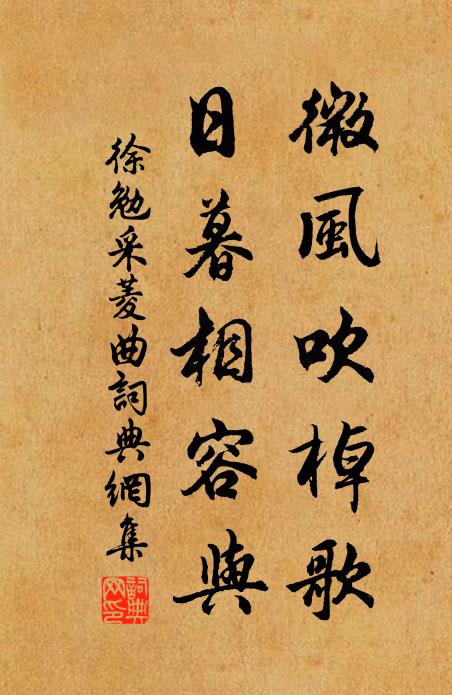 微風吹棹歌
日暮相容與
徐勉采菱曲詞典網集
詞典网印